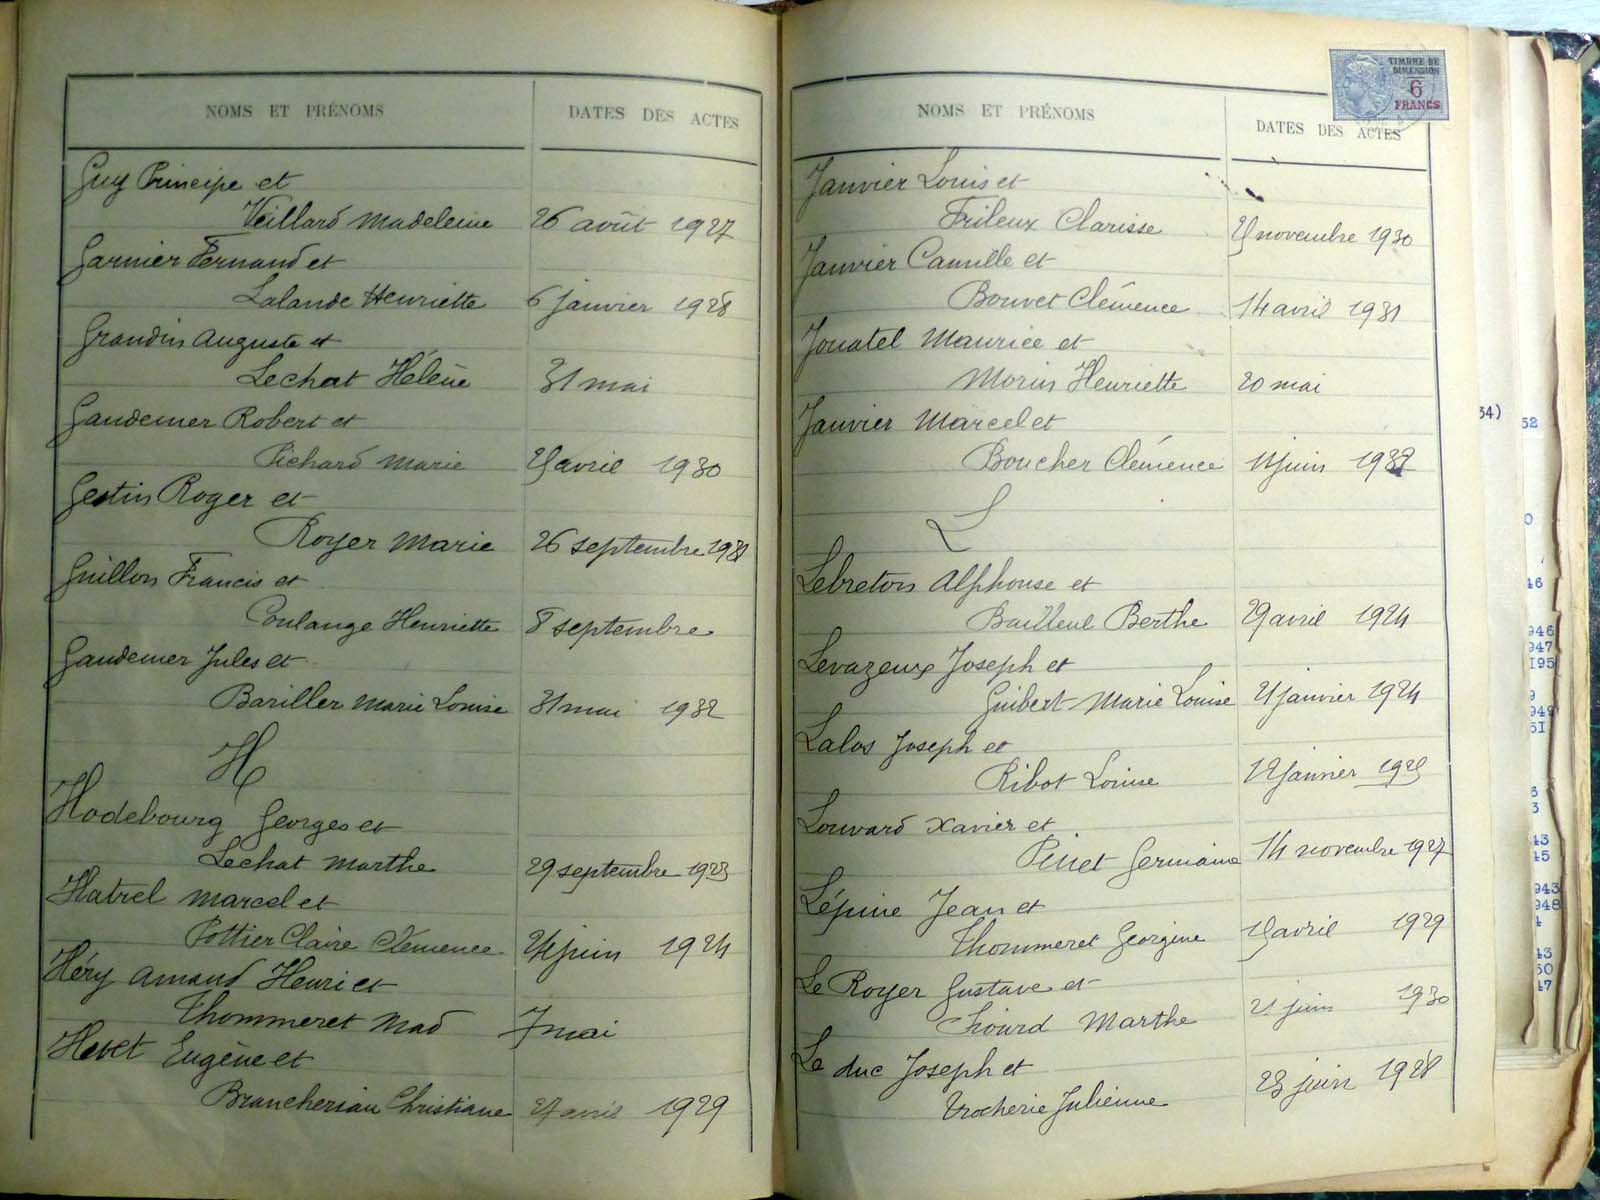 NOMS ET PRÉNOMS DATES DES ACTES
Guy Principe et
Veillard Madeleine 26 août 1927
Garnier Fernand et
Lalande Henriette 6 janvier 1928
Grandin Auguste et
Lechat Hélène 31 mai
Gaudemer Robert et
Richard Marie avril 1930
Gestin Roger et
Royer Marie 26 septembre 1931
Guillon Francis et
Coulange Henriette 8 septembre
Gaudemer Jules et
Bariller Marie Louise 31 mai 1932
H
Hodebourg Georges et
Lechat Marthe 29 septembre 1923
Hatrel Marcel et
Pottier Claire Clémence 24 juin 1924
Héry Amand Henri et
Thommeret Mad 7 mai
Hevet Eugène et
Brancheriau Christiane avril 1929
TIMBRE DE
DIMENSION
6
FRANCS
NOMS ET PRÉNOMS DATES DES ACTES
Janvier Louis et
Frileux Clarisse novembre 1930
Janvier Camille et
Bouvet Clémence 14 avril 1931
Jouatel Maurice et
Morin Henriette 20 mai
Janvier Marcel et
Boucher Clémence 11 juin 1932
L
Lebreton Alphonse et
Bailleul Berthe 29 avril 1924
Levazeux Joseph et
Guibert Marie Louise 21 janvier 1924
Lalos Joseph et
Ribot Louise 12 janvier 1925
Louvard Xavier et
Pinet Germaine 14 novembre 1927
Lépine Jean et
Thommeret Georgine avril 1929
Le Royer Gustave et
Marthe 21 juin 1930
Le duc Joseph et
Trocherie Julienne 23 juin 1928
34)
52